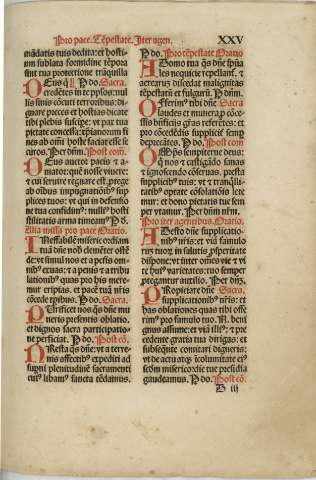 Pro pace. Tẽpestate. Iter agen. XXV
mãdatis tuis dedita: et hosti
um sublata formidine tẽpora
sint tua protectione trãquilla
Deus q̃ Pdo. Sacra.
credẽtes in te pplos: nul
lis sinis cõcuti terroribus: di
gnare preces et hostias dicate
tibi plebis suscipe: vt pax tua
pietate concessa: xp̃ianorum fi
nes ab om̃i hoste faciat esse se
curos. Per dñm. Post com̃.
Deus auctor pacis et a
mator: quẽ nosse viuere:
et cui seruire regnare est: protege
ab oĩbus impugnationibꝰ sup
plices tuos: vt qui in defensio
ne tua confidimꝰ: nulliꝰ hosti
litatis arma timeamꝰ. P
Alia missa pro pace Oratio.
Ineffabilem misericordiam
tuã dñe nob̃ clemẽter ostẽ
de: vt simul nos et a pctis om
nibꝰ exuas: et a penis et a tribu
lationibꝰ quas pro his mere
mur eripias. et pacẽ tuã nr̃is
cõcede tpibus. Pdo. Sacra.
Purificet nos q̃s dñe mu
neris presentis oblatio.
et dignos sacra participatio
ne perficiat. Pdo. Post cõ.
Presta q̃s dñe: vt a terre
nis affectibꝰ expediti ad
supni plenitudinẽ sacrament
cuiꝰ libamꝰ sancta tẽdamus.
Pdo. Pro tẽpestate Oratio
A Domo tua q̃s dñe spũa
les nequicie repellant: et
aerearum discedat malignitas
tẽpestatũ et fulgurũ. P dñm.
Offerimꝰ tibi dñe Sacra
laudes et munera p cõces
sis bñficiis gr̃as referẽtes: et
pro cõcedẽdis supplicit̃ semp
deprecãtes. Pdo. Post com̃
Omps sempiterne deus:
q̃ nos et castigãdo sanas
et ignoscendo cõseruas. presta
supplicibꝰ tuis: vt et tranquilli
tatibꝰ optate cõsolatiõis lete
mur: et dono pietatis tue sem
per vtamur. Per dñm nr̃m.
Pro iter agentibus. Oratio.
Adesto dñe supplicatio
nibꝰ nr̃is: et viã famulo
rum tuorum in salutis prosperitate
dispone: vt inter om̃es vie et vi
te huiꝰ varietates: tuo semper
protegamur auxilio. Per dñm.
Propiciare dñe Sacra
supplicationibꝰ nr̃is: et
has oblationes quas tibi offe
rimꝰ pro famulo tuo. N. beni
gnus assume: et viã illiꝰ: et pre
cedente gratia tua dirigas: et
subsequẽte comitari digneris:
vt de actu atque icolumitate eiꝰ
secdm̃ misericordie tue presidia
gaudeamus. Pdo. Post cõ.
D iij